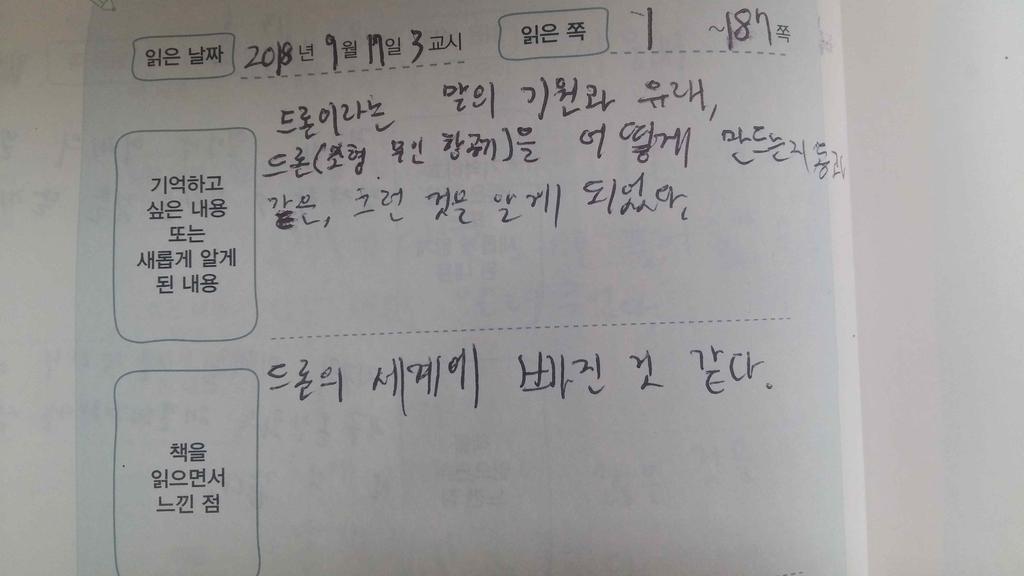 읽은 날짜 2018년 9월 17일 3교시 읽은 쪽 1 ~187쪽
드론이라는 말의 기원과 유래,
기억하고 싶은 내용 또는 새롭게 알게 된 내용
드론(소형 무인 항공기)을 어떻게 만드는지 등과
같은, 그런 것을 알게 되었다.
드론의 세계에 빠진 것 같다.
책을 읽으면서 느낀 점